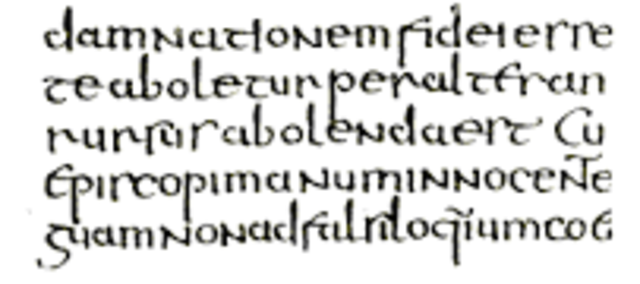 damnationemfideiesse
teaboleturperalteran
rursusabolendaest Cu
Episcopimanuminnocentē
guamnonadfalsiloq̄iumcoe